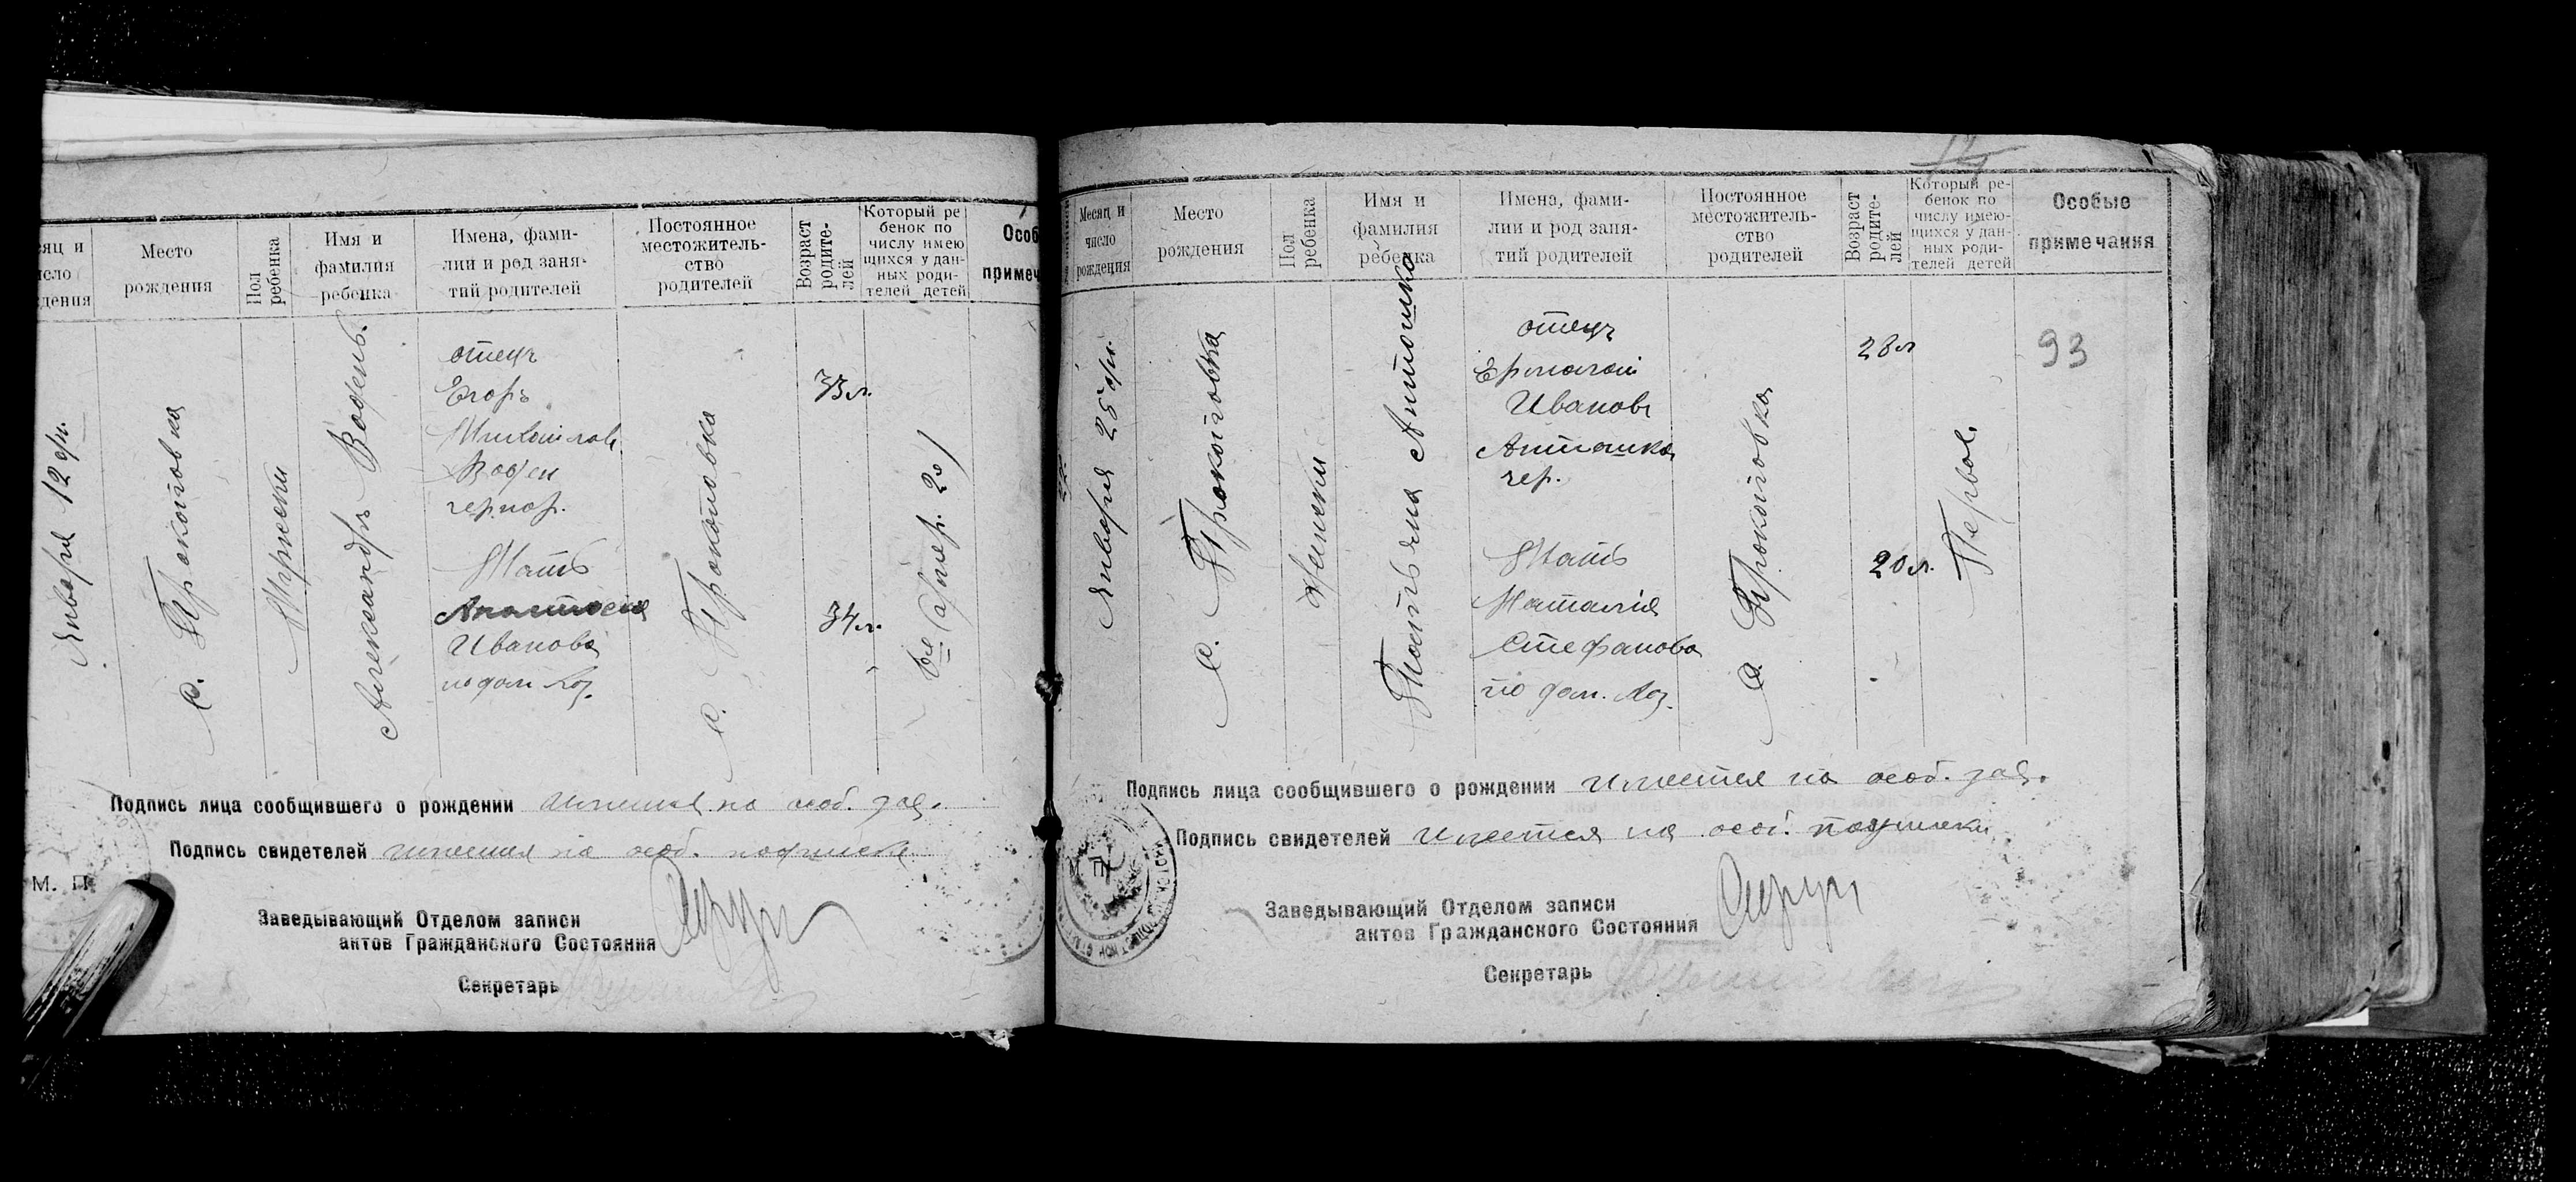 Месяц и
число
рождения
Место
рождения
Пол
ребенка
Имя и
фамилия
ребенка
Имена, фами-
лии и род заня-
тий родителей
Постоянное
местожитель-
ство
родителей
Возраст
родите-
лей
Который ре
бенок по
числу имею
щихся у дан-
ных роди-
телей детей
Особ
примеч
Января 12 дн.
с. Прокоповка
Мужески
Александръ Водень.
отецъ
Егоръ
Михайлов
Воден
чернор.
Мать
Анастасия
Иванова
по дом. хоз.
с. Прокоповка
33 л.
34 л.
Подпись лица сообщившего о рождении имеется на особ. зая.
Подпись свидетелей имеется на особ. подписке
М. П.
Заведывающий Отделом записи
актов Гражданского Состояния
Секретарь
Месяц и
число
рождения
Место
рождения
Пол
ребенка
Имя и
фамилия
ребенка
Имена, фами-
лии и род заня-
тий родителей
Постоянное
местожитель-
ство
родителей
Возраст
родите-
лей
Который ре-
бенок по
числу имею-
щихся у дан-
ных роди-
телей детей
Особые
примечания
Января 25 дн.
с. Прокоповка
Женски
Татьяна Антошка
отецъ
Ермолай
Ивановъ
Антошка
чер.
Мать
Наталія
Стефанова
по дом. хоз.
с. Прокоповка
28 л
20 л.
Первой
93
Подпись лица сообщившего о рождении имеется на особ. зая.
Подпись свидетелей имеется на особ. подписки
М. П.
Заведывающий Отделом записи
актов Гражданского Состояния
Секретарь